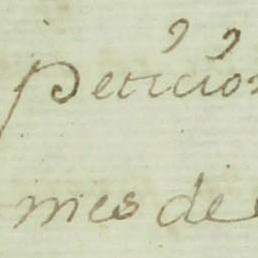 petición
mes de